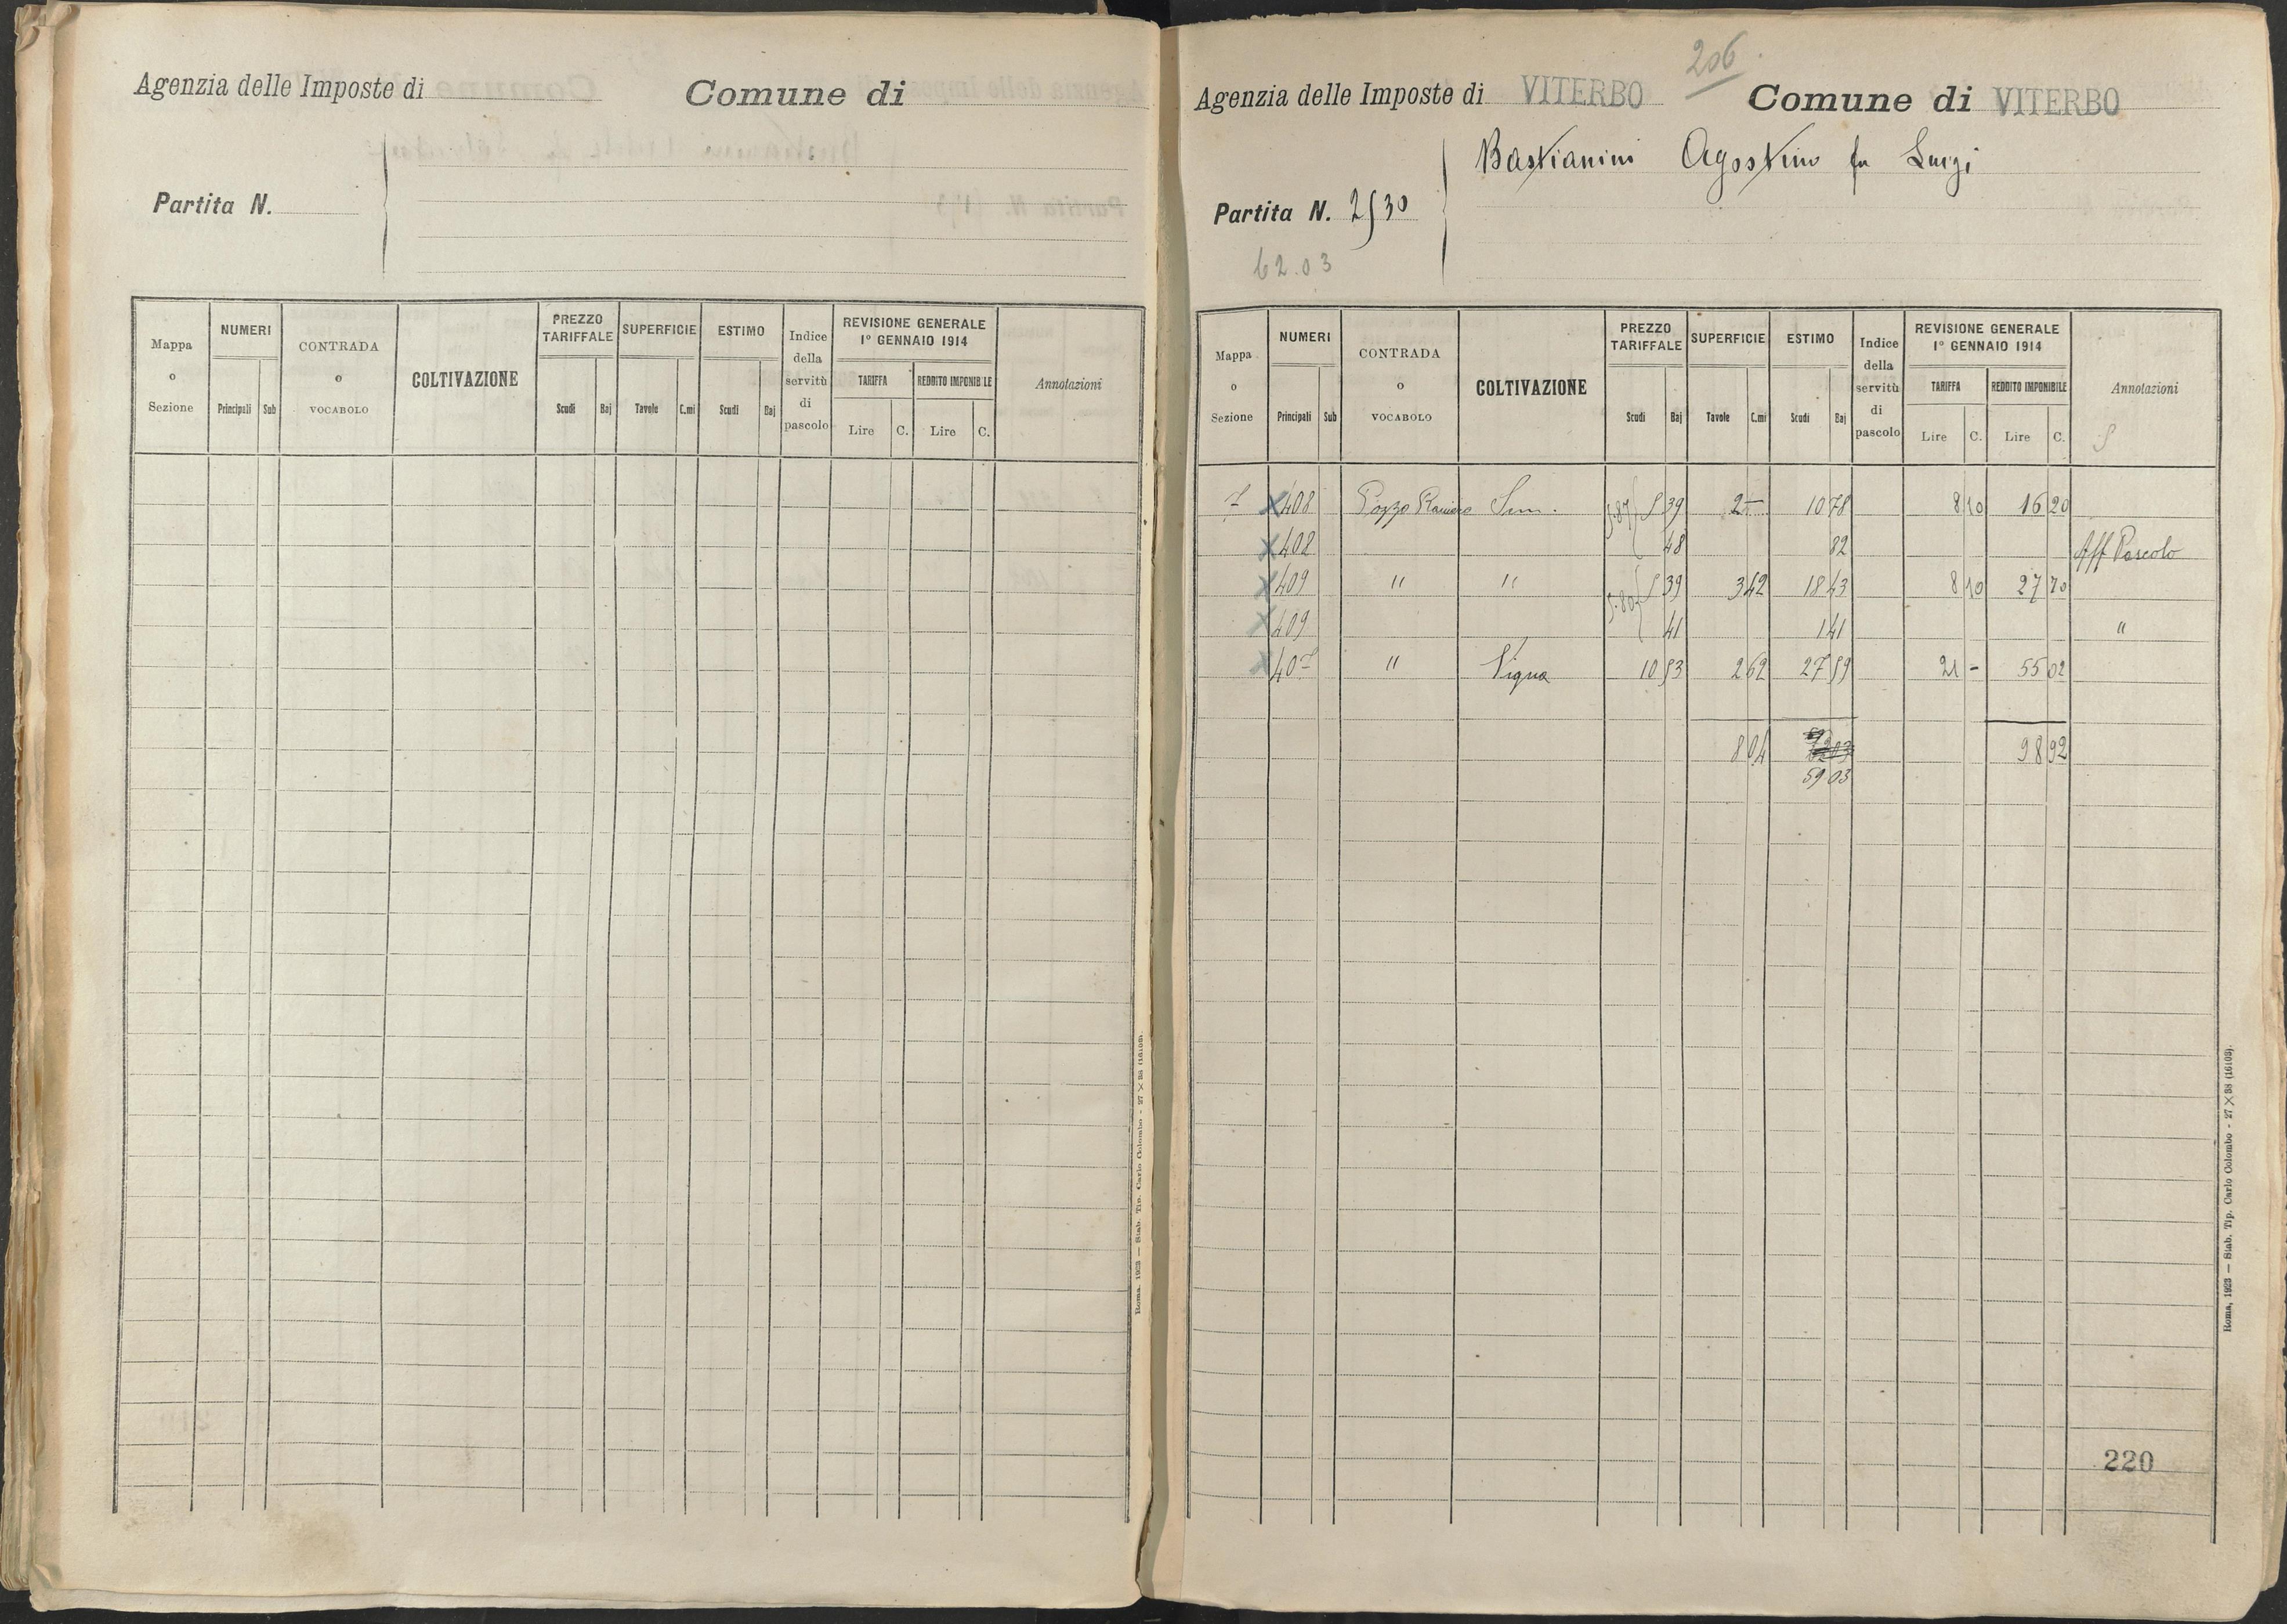 Agenzia delle Imposte di
Comune di
Partita N.
Mappa o Sezione
NUMERI
Principali Sub
CONTRADA o VOCABOLO
COLTIVAZIONE
PREZZO TARIFFALE
Scudi Baj
SUPERFICIE
Tavole C.mi
ESTIMO
Scudi Baj
Indice della servitù di pascolo
REVISIONE GENERALE
1° GENNAIO 1914
TARIFFA
Lire C.
REDDITO IMPONIBILE
Lire C.
Annotazioni
Roma, 1923 — Stab. Tip. Carlo Colombo - 27 X 38 (16108).
206
Agenzia delle Imposte di VITERBO Comune di VITERBO
Bastianini Agostino fu Luigi
Partita N. 2530
62.03
Mappa o Sezione
NUMERI
Principali Sub
CONTRADA o VOCABOLO
COLTIVAZIONE
PREZZO TARIFFALE
Scudi Baj
SUPERFICIE
Tavole C.mi
ESTIMO
Scudi Baj
Indice della servitù di pascolo
REVISIONE GENERALE
1° GENNAIO 1914
TARIFFA
Lire C.
REDDITO IMPONIBILE
Lire C.
Annotazioni
408 Pozzo Raniero Sem. 5.87 5 39 2 — 10 78 8 10 16 20
408 48 82 Aff Pascolo
409 " " 5.80 5 39 3 42 18 43 8 10 27 70
409 41 1 41 "
407 " Vigna 10 53 2 62 27 59 21 - 55 02
8 04 98 92
59 03
220
Roma, 1923 — Stab. Tip. Carlo Colombo - 27 X 38 (16108).